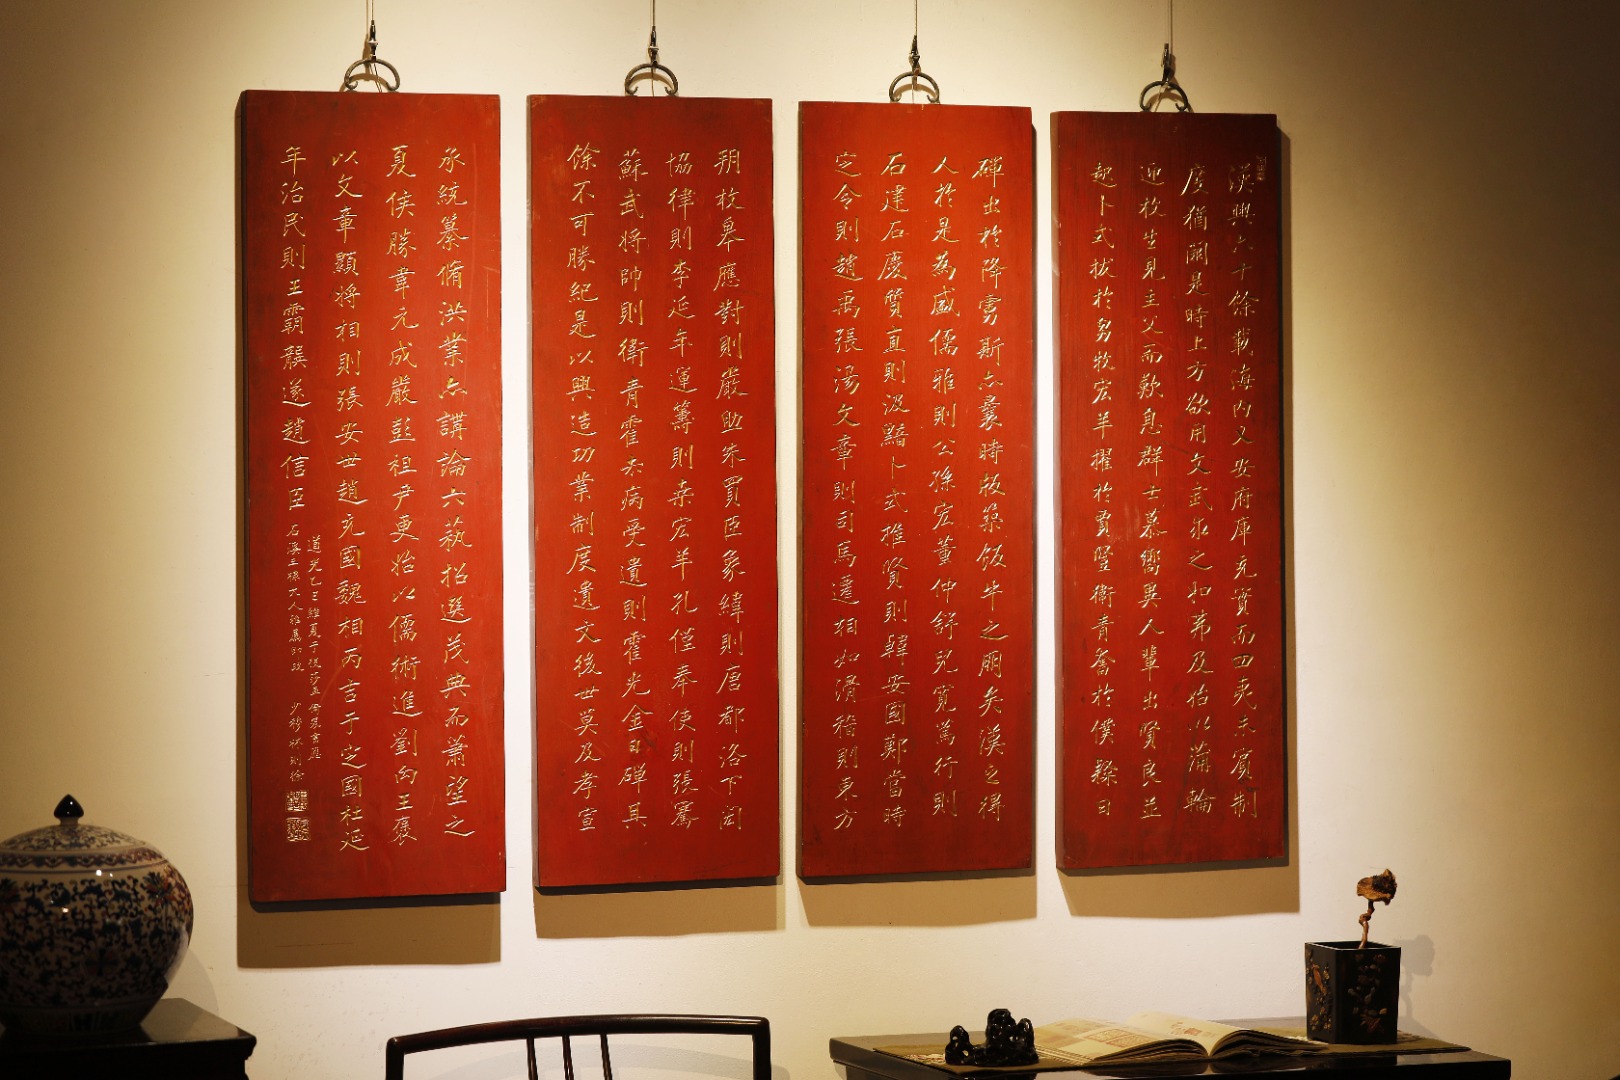 漢興六十餘載海内乂安府庫充實而四夷未賓制
度猶闕是時上方欲用文武求之如弗及始以蒲輪
迎枚生見主父而歎息群士慕嚮異人輩出賢良並
起卜式拔於芻牧宏羊擢於賈豎衛青奮於僕隸日
磾出於降虜斯亦曩時版築飯牛之朋矣漢之得
人於是為盛儒雅則公孫宏董仲舒兒寬篤行則
石建石慶質直則汲黯卜式推賢則韓安國鄭當時
定令則趙禹張湯文章則司馬遷相如滑稽則東方
朔枚皋應對則嚴助朱買臣象緯則唐都洛下閎
協律則李延年運籌則桑宏羊孔僅奉使則張騫
蘇武將帥則衛青霍去病受遺則霍光金日磾其
餘不可勝紀是以興造功業制度遺文後世莫及孝宣
承統纂脩洪業亦講論六藝招選茂典而蕭望之
夏侯勝韋元成嚴彭祖尹更始以儒術進劉向王褒
以文章顯將相則張安世趙充國魏相丙吉于定國杜延
年治民則王霸龔遂趙信臣
道光乙巳維夏 書應
石溪三棣大人雅屬即政
少穆林則徐